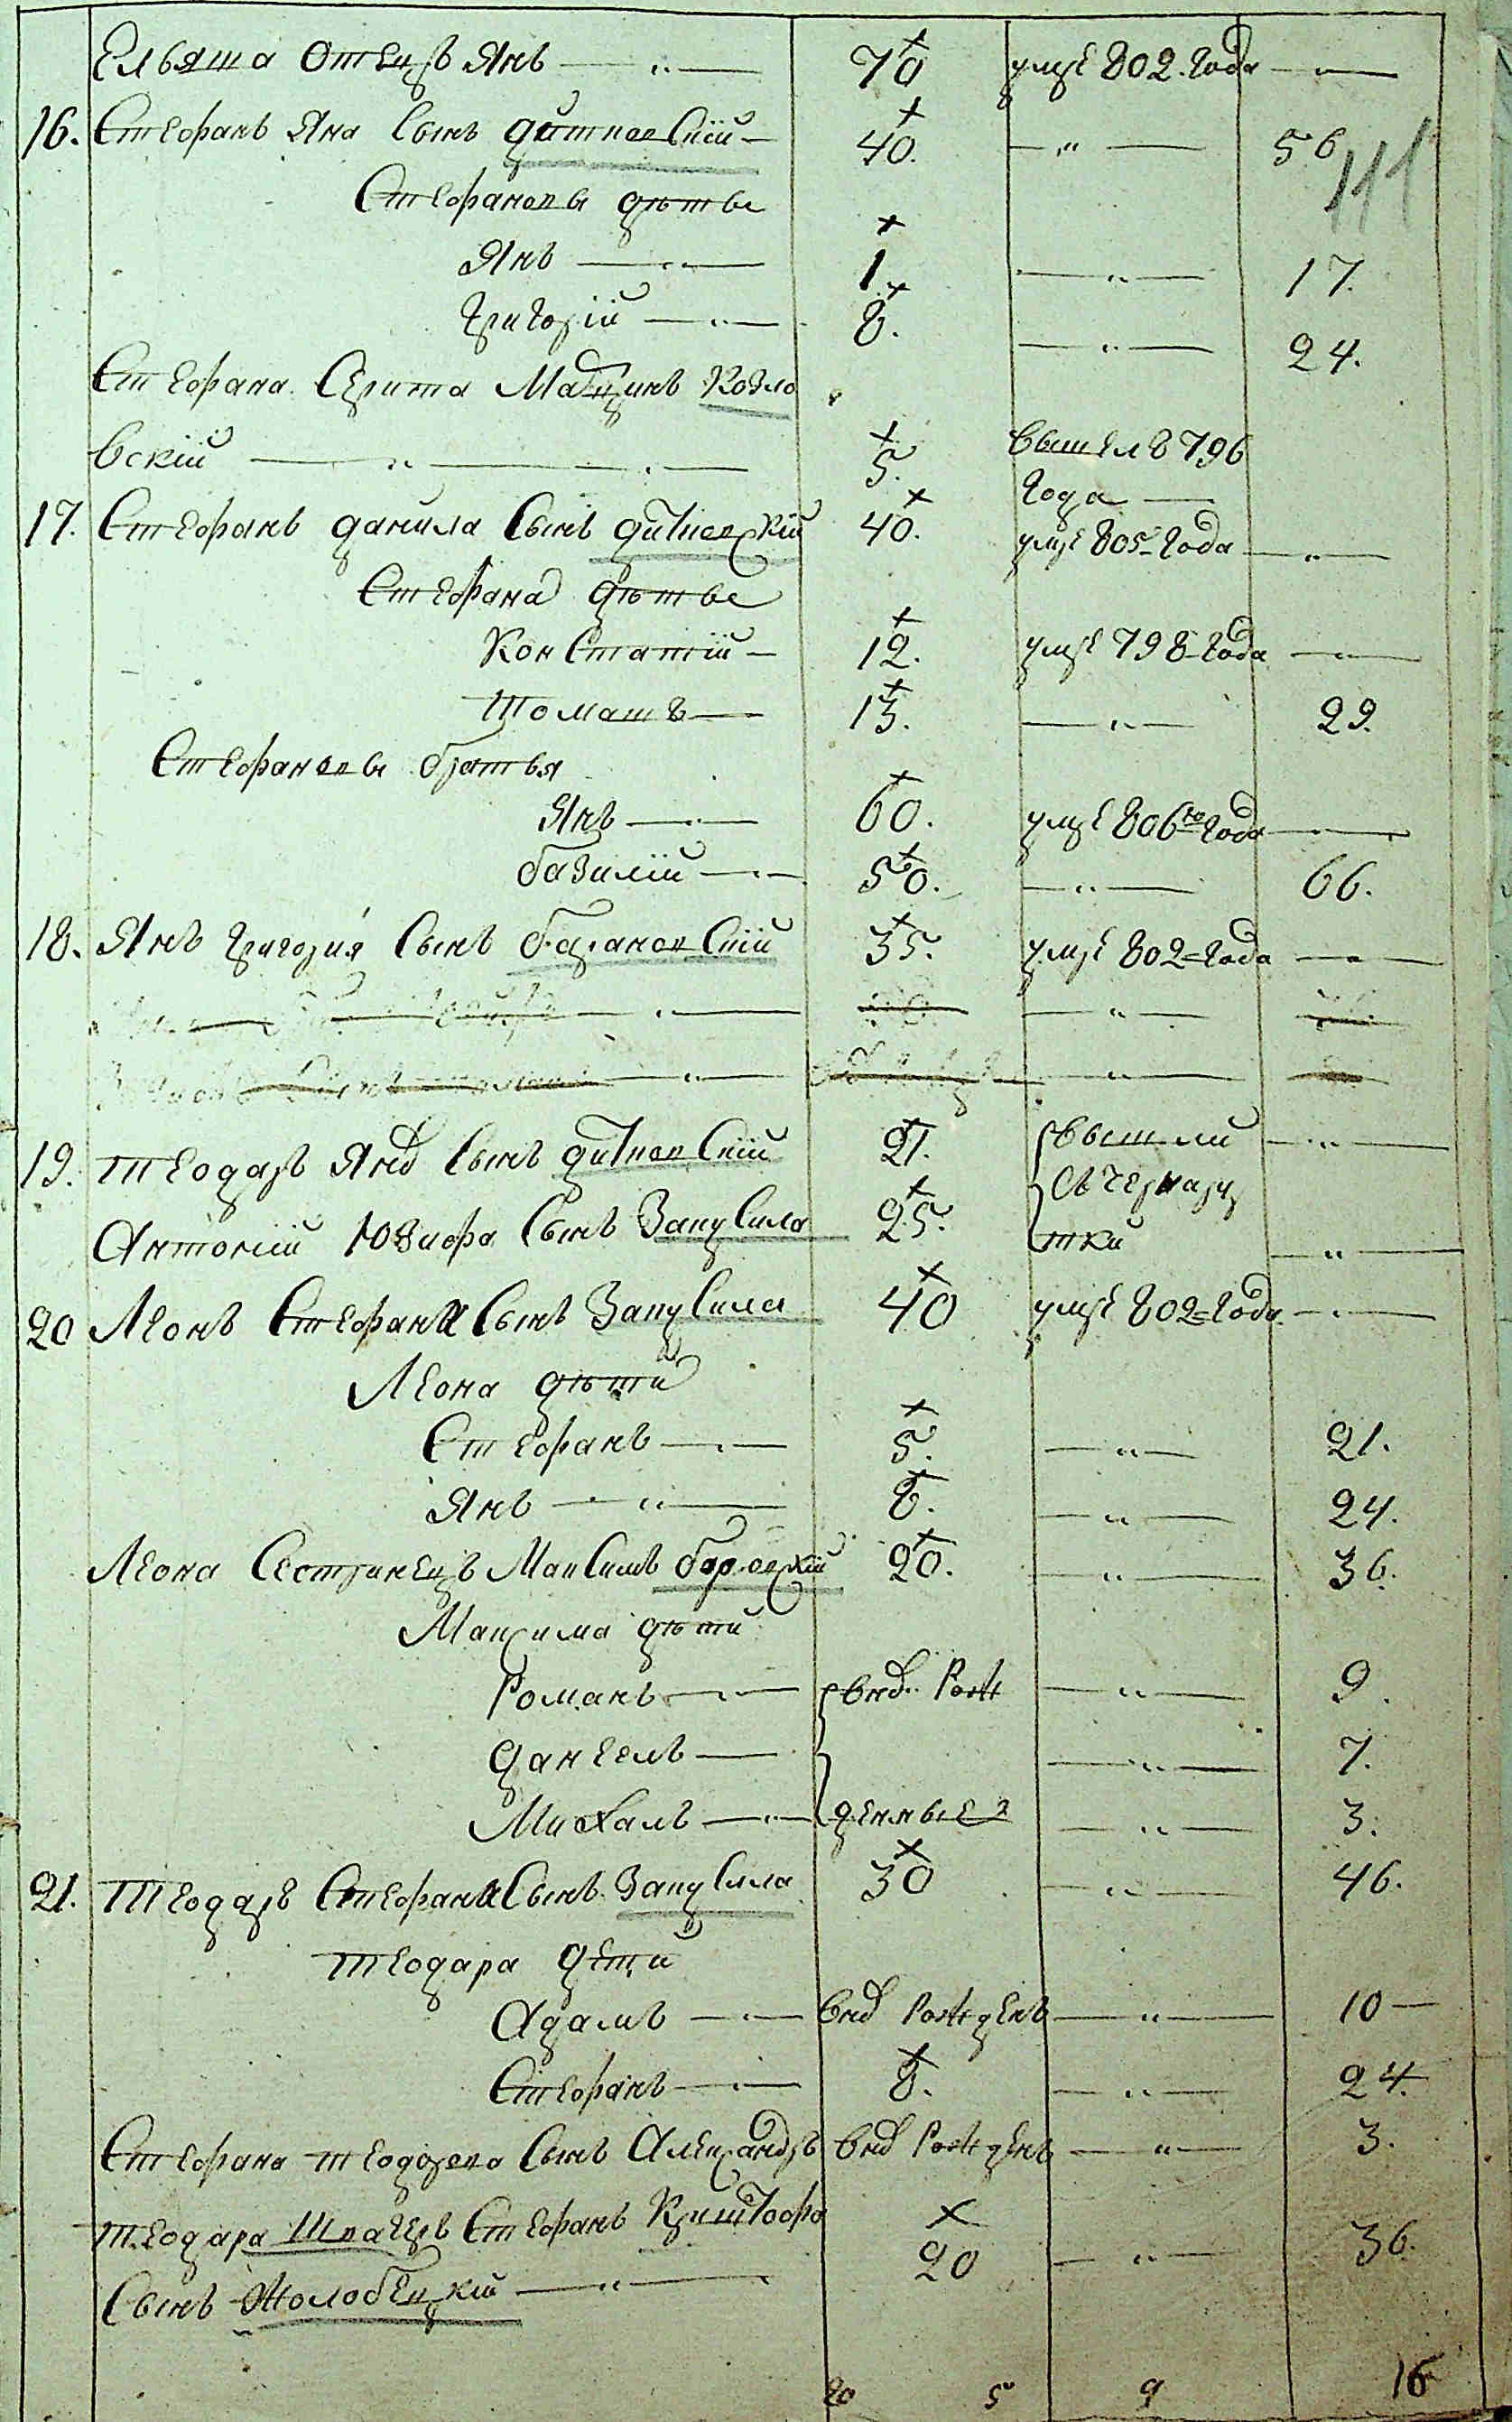 Ельяша Отецъ Янъ — „ — 70 умре 802. года — „ —
16. Стефанъ Яна Сынъ Дитковскій — 40. — „ — 56
111
Стефановы дѣтъе
Янъ — „ — 1. — „ — 17.
Григорій — „ — 8. — „ — 24.
Стефана Сирита Мацинъ Козло
вскій — „ — 5. вышел 796
года —
17. Стефанъ Данила Сынъ 40. умре 805 года — „ —
Стефана дѣтъе
Констатій — 12. умре 798 года — „ —
Томашъ — 13. — „ — 29.
Стефановы братья
Янъ — „ — 60. умре 806го года — „ —
базилій — „ — 50. — „ — 66.
18. Янъ Григорія Сынъ барановскій 35. умре 802 года — „ —
19. Теодаръ Яна Сынъ 21. вышли — „ —
Съ
Антоній Юзифа Сынъ 25. — „ —
тки
20 Леонъ Стефана Сынъ 40 умре 802 года — „ —
Леона дѣти
Стефанъ — „ — 5. — „ — 21.
Янъ — „ — 8. — „ — 24.
Леона Сестринецъ Максимъ 20. — „ — 36.
Максима дѣти
Романъ — „ — вно. Рож — „ — 9.
Даніелъ — — „ — 7.
Михалъ — „ — денные — „ — 3.
21. Теодаръ Стефана Сынъ 30 — „ — 46.
Теодара дети
Адамъ — „ — вно Рожденъ — „ — 10 —
Стефанъ — „ — 8. — „ — 24.
Стефана Теодорова Сынъ Александръ вно Рожденъ — „ — 3.
Теодара Швагеръ Стефанъ Криштофа 20 — „ — 36.
Сынъ Жолобецкій — „ —
20 5 9 16